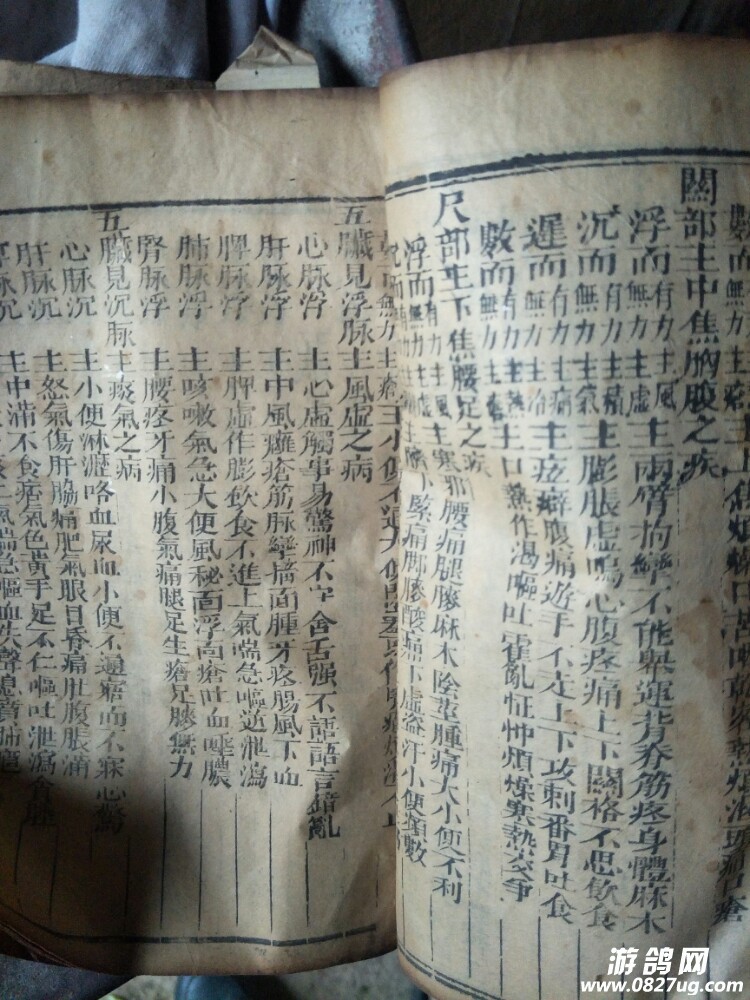 關部主中焦胸腹之疾
浮而有力主風 無力主虛 主兩臂拘攣不能舉運背脊筋疼身體麻木
沉而有力主積 無力主氣 主膨脹虛鳴心腹疼痛上下關格不思飲食
遲而有力主痛 無力主冷 主痃癖腹痛遊手不定上下攻刺番胃吐食
數而有力主熱 無力主瘡 主口熱作渴嘔吐霍亂怔忡煩燥寒熱交爭
尺部主下焦腰足之疾
浮而有力主風 無力主虛 主寒邪腰痛腿膝麻木陰莖腫痛大小便不利
五臟見浮脉 主風虛之病
心脉浮 主心虛觸事易驚神不守舍舌强不語語言錯亂
肝脉浮 主中風癱瘡筋脉攣搐面腫牙疼腸風下血
脾脉浮 主脾虛作膨飲食不進上氣喘急嘔逆泄瀉
肺脉浮 主咳嗽氣急大便風秘面浮面瘡吐血唾膿
腎脉浮 主腰疼牙痛小腹氣痛腿足生瘡足膝無力
五臟見沉脉 主痰氣之病
心脉沉 主小便淋瀝咯血尿血小便不通寤而不寐心驚
肝脉沉 主怒氣傷肝脇痛肥氣眼目昏痛肚腹脹滿
主中滿不食痞氣色黄手足不仁嘔吐泄瀉食
游鸽网
www.0827ug.com